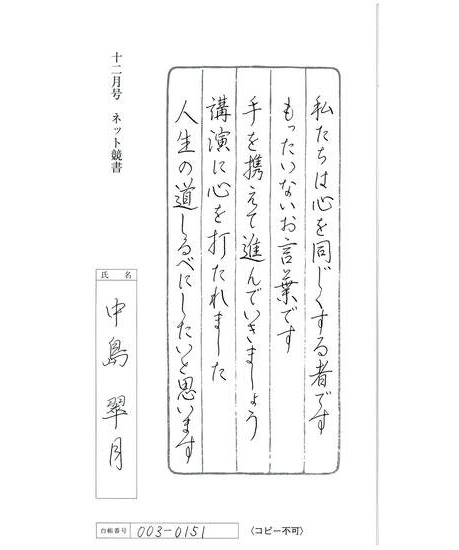 私たちは心を同じくする者です
もったいないお言葉です
手を携えて進んでいきましょう
講演に心を打たれました
人生の道しるべにしたいと思います
十二月号 ネット競書
氏 名
中島 翠月
台帳番号 003-0151
〈コピー不可〉